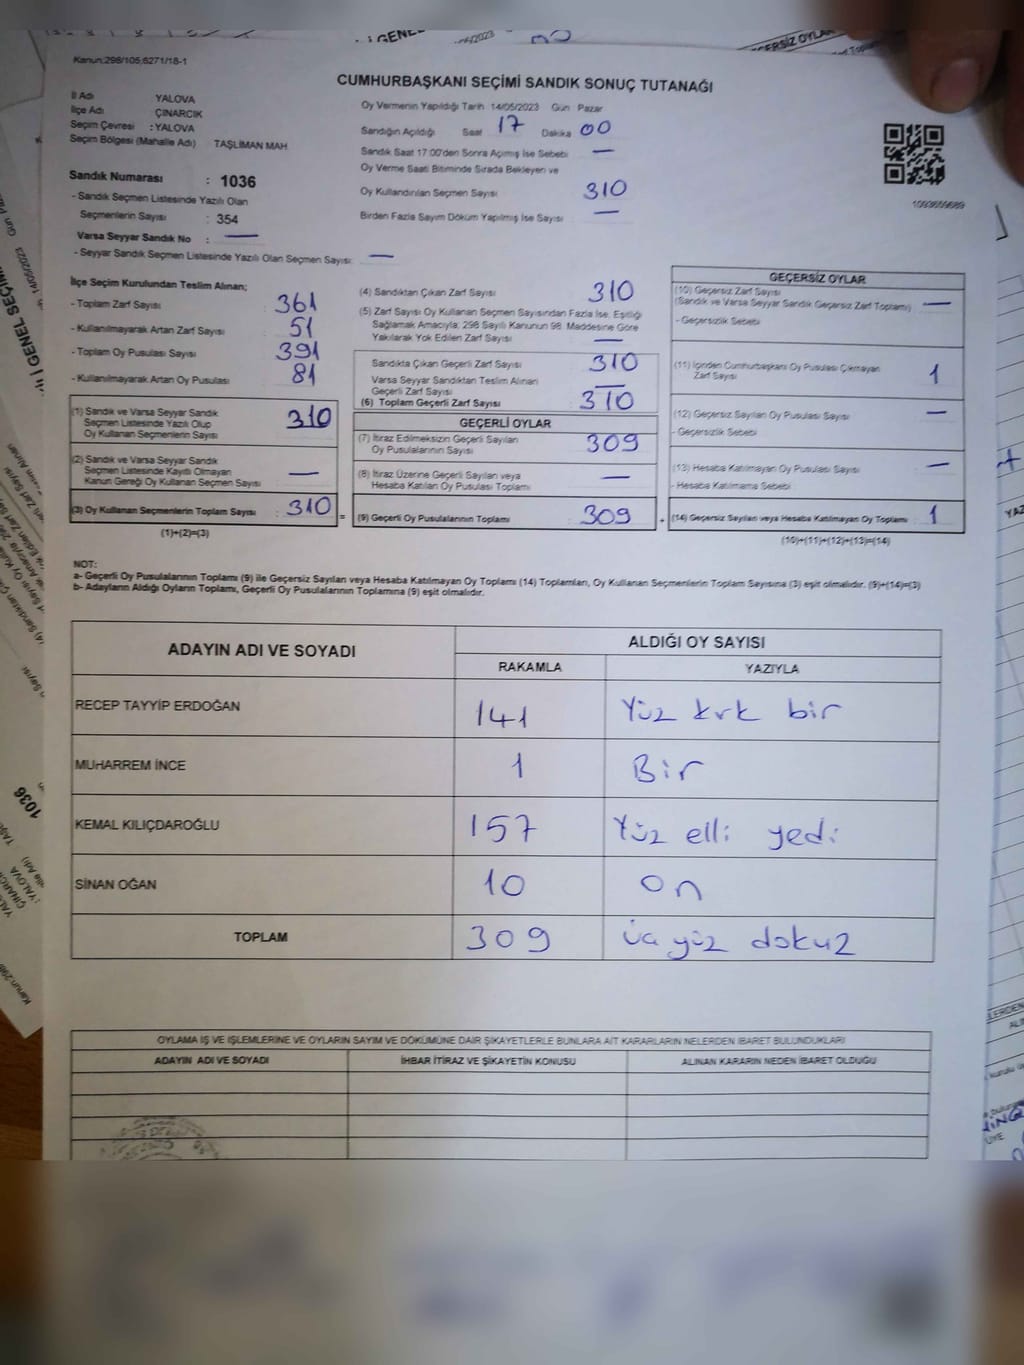 Kanun:298/105,6271/18-1
CUMHURBAŞKANI SEÇİMİ SANDIK SONUÇ TUTANAĞI
İl Adı YALOVA
İlçe Adı ÇINARCIK
Seçim Çevresi : YALOVA
Seçim Bölgesi (Mahalle Adı) TAŞLİMAN MAH
Sandık Numarası : 1036
- Sandık Seçmen Listesinde Yazılı Olan
Seçmenlerin Sayısı : 354
Varsa Seyyar Sandık No : —
- Seyyar Sandık Seçmen Listesinde Yazılı Olan Seçmen Sayısı: —
Oy Vermenin Yapıldığı Tarih 14/05/2023 Gün Pazar
Sandığın Açıldığı Saat 17 Dakika 00
Sandık Saat 17:00'den Sonra Açımış İse Sebebi —
Oy Verme Saati Bitiminde Sırada Bekleyen ve
Oy Kullandırılan Seçmen Sayısı 310
Birden Fazla Sayım Döküm Yapılmış İse Sayısı —
1093659689
İlçe Seçim Kurulundan Teslim Alınan;
- Toplam Zarf Sayısı : 361
- Kullanılmayarak Artan Zarf Sayısı : 51
- Toplam Oy Pusulası Sayısı : 391
- Kullanılmayarak Artan Oy Pusulası : 81
(1) Sandık ve Varsa Seyyar Sandık
Seçmen Listesinde Yazılı Olup
Oy Kullanan Seçmenlerin Sayısı : 310
(2) Sandık ve Varsa Seyyar Sandık
Seçmen Listesinde Kayıtlı Olmayan
Kanun Gereği Oy Kullanan Seçmen Sayısı : —
(3) Oy Kullanan Seçmenlerin Toplam Sayısı : 310
(1)+(2)=(3)
=
(4) Sandıktan Çıkan Zarf Sayısı 310
(5) Zarf Sayısı Oy Kullanan Seçmen Sayısından Fazla İse, Eşitliği
Sağlamak Amacıyla; 298 Sayılı Kanunun 98. Maddesine Göre
Yakılarak Yok Edilen Zarf Sayısı —
Sandıkta Çıkan Geçerli Zarf Sayısı 310
Varsa Seyyar Sandıktan Teslim Alınan
Geçerli Zarf Sayısı —
(6) Toplam Geçerli Zarf Sayısı 310
GEÇERLİ OYLAR
(7) İtiraz Edilmeksizin Geçerli Sayılan
Oy Pusulalarının Sayısı 309
(8) İtiraz Üzerine Geçerli Sayılan veya
Hesaba Katılan Oy Pusulası Toplamı —
(9) Geçerli Oy Pusulalarının Toplamı 309
+
GEÇERSİZ OYLAR
(10) Geçersiz Zarf Sayısı
(Sandık ve Varsa Seyyar Sandık Geçersiz Zarf Toplamı) —
- Geçersizlik Sebebi
(11) İçinden Cumhurbaşkanı Oy Pusulası Çıkmayan
Zarf Sayısı 1
(12) Geçersiz Sayılan Oy Pusulası Sayısı —
- Geçersizlik Sebebi
(13) Hesaba Katılmayan Oy Pusulası Sayısı —
- Hesaba Katılmama Sebebi
(14) Geçersiz Sayılan veya Hesaba Katılmayan Oy Toplamı 1
(10)+(11)+(12)+(13)=(14)
NOT:
a- Geçerli Oy Pusulalarının Toplamı (9) ile Geçersiz Sayılan veya Hesaba Katılmayan Oy Toplamı (14) Toplamları, Oy Kullanan Seçmenlerin Toplam Sayısına (3) eşit olmalıdır. (9)+(14)=(3)
b- Adayların Aldığı Oyların Toplamı, Geçerli Oy Pusulalarının Toplamına (9) eşit olmalıdır.
ADAYIN ADI VE SOYADI
ALDIĞI OY SAYISI
RAKAMLA YAZIYLA
RECEP TAYYİP ERDOĞAN 141 Yüz kırk bir
MUHARREM İNCE 1 Bir
KEMAL KILIÇDAROĞLU 157 Yüz elli yedi
SİNAN OĞAN 10 on
TOPLAM 309 üç yüz dokuz
OYLAMA İŞ VE İŞLEMLERİNE VE OYLARIN SAYIM VE DÖKÜMÜNE DAİR ŞİKAYETLERLE BUNLARA AİT KARARLARIN NELERDEN İBARET BULUNDUKLARI
ADAYIN ADI VE SOYADI İHBAR İTİRAZ VE ŞİKAYETİN KONUSU ALINAN KARARIN NEDEN İBARET OLDUĞU